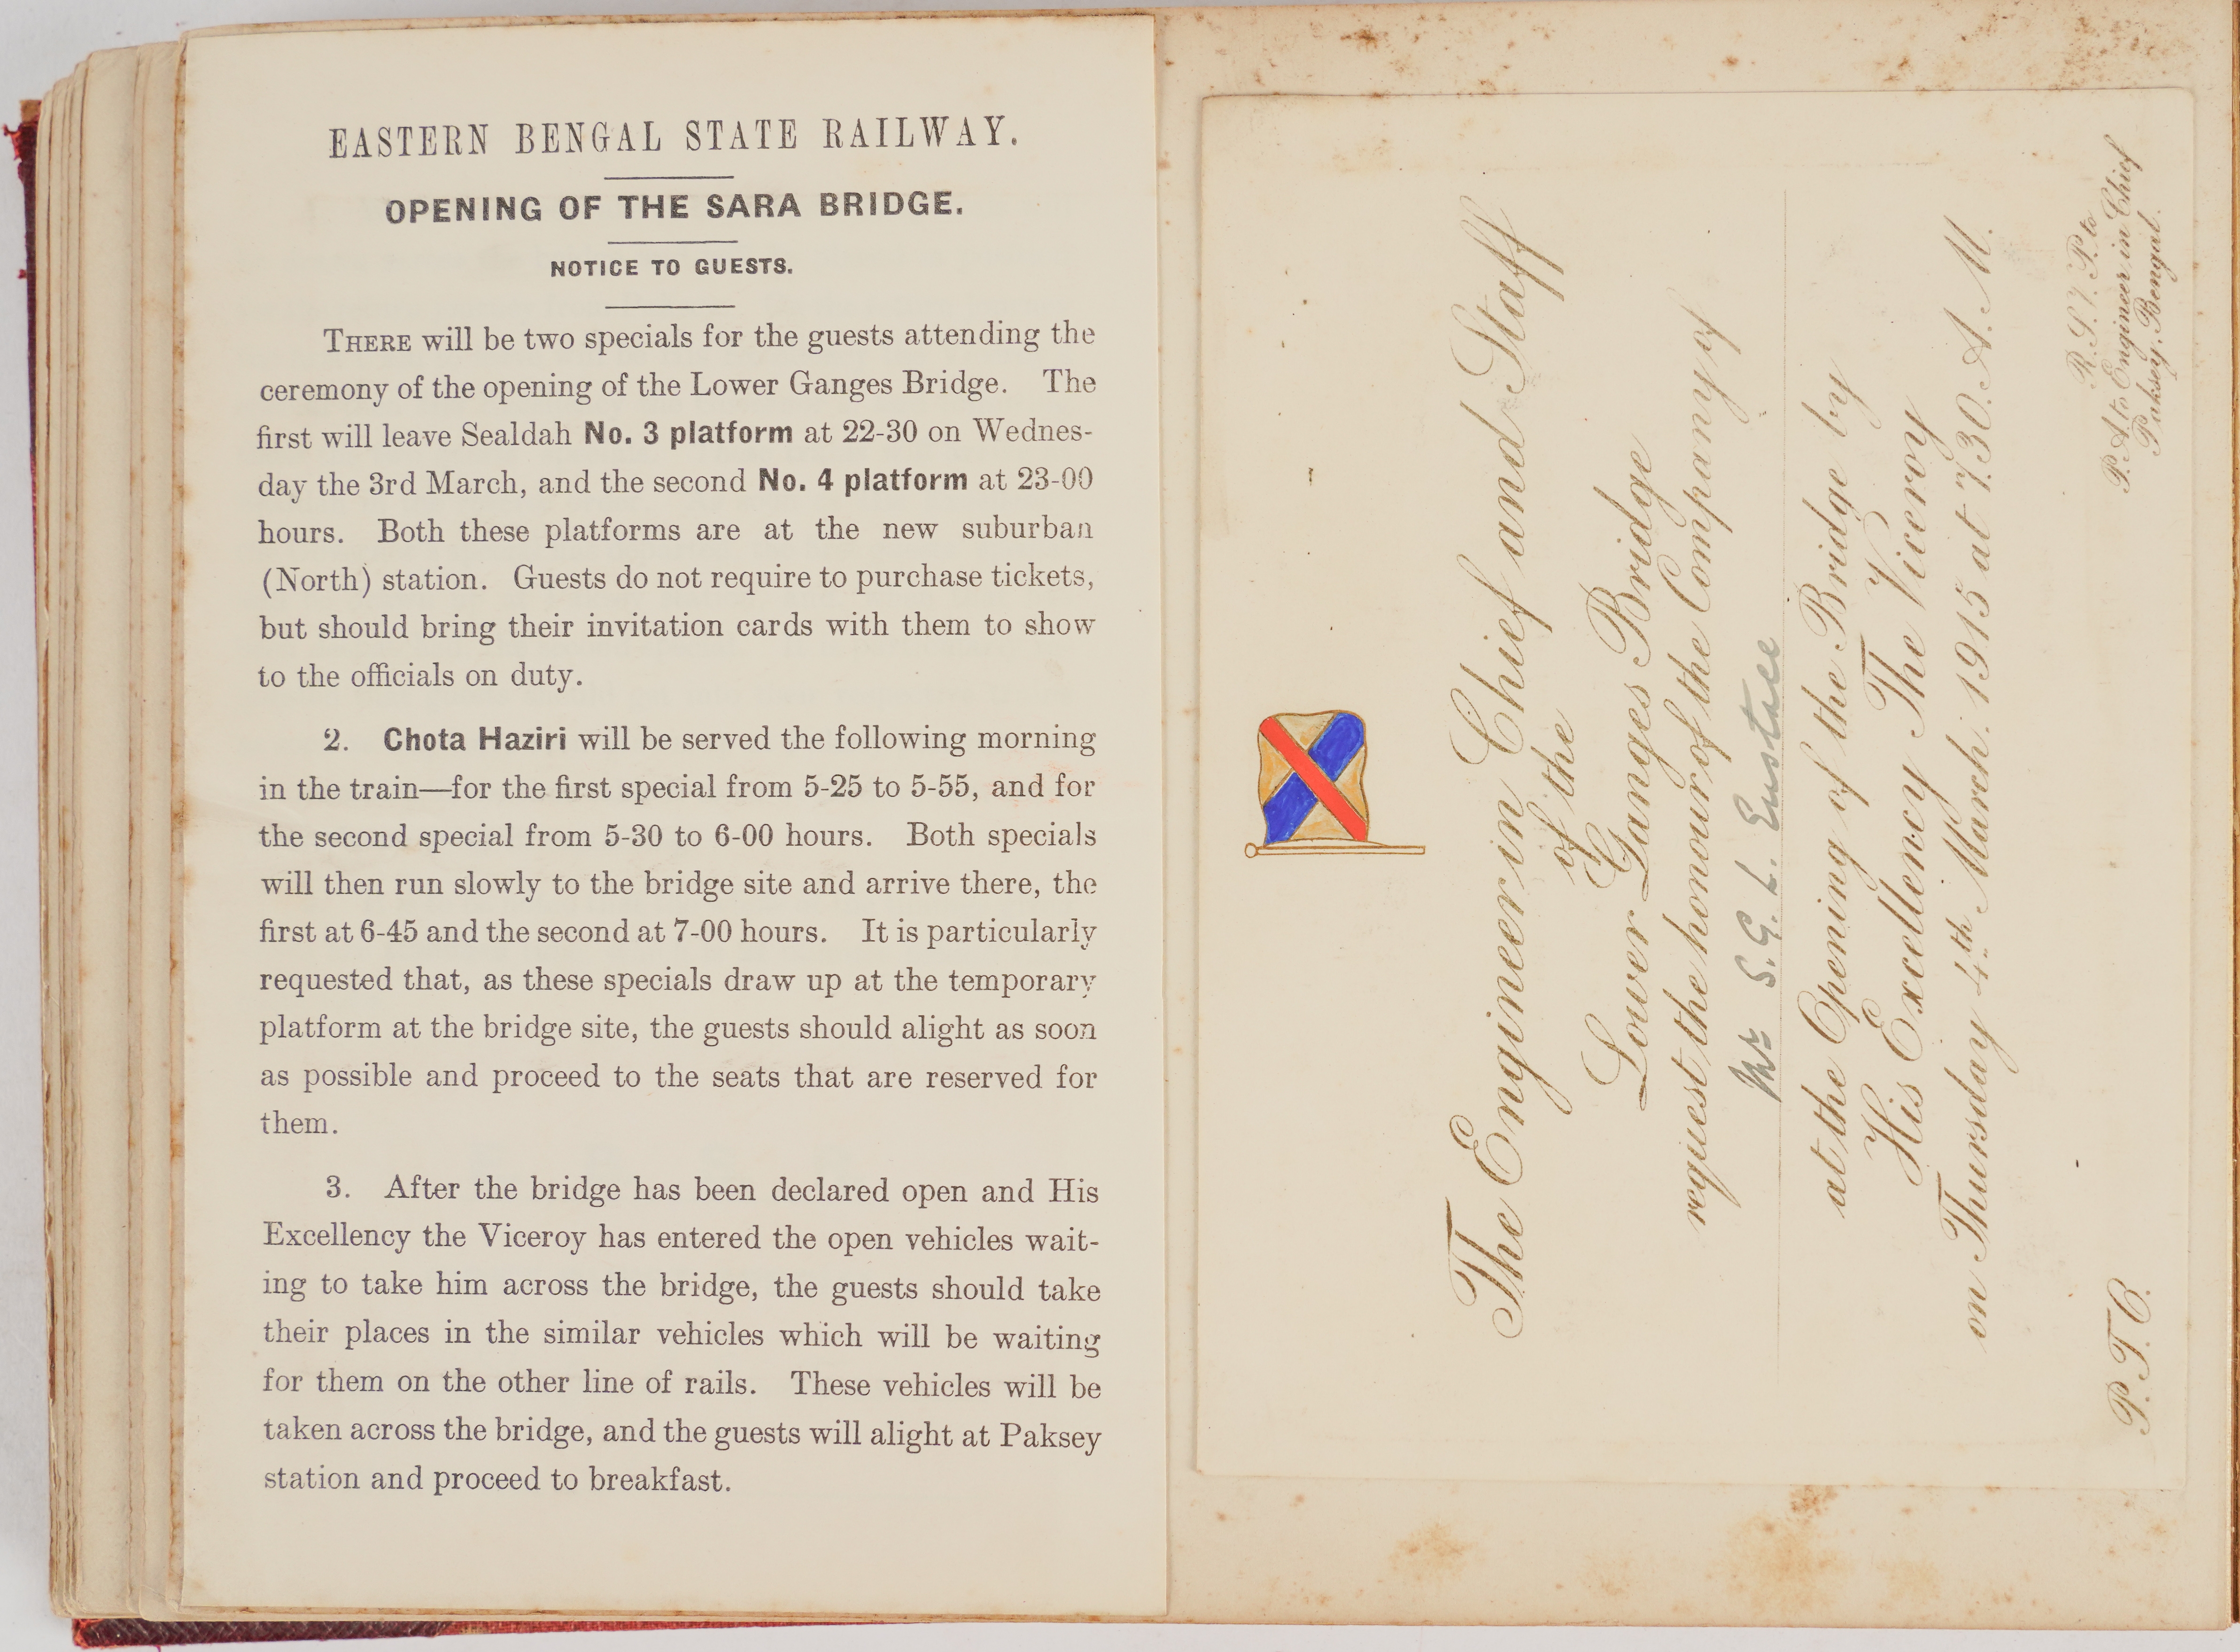 EASTERN BENGAL STATE RAILWAY.
OPENING OF THE SARA BRIDGE.
NOTICE TO GUESTS.
THERE will be two specials for the guests attending the
ceremony of the opening of the Lower Ganges Bridge. The
first will leave Sealdah No. 3 platform at 22-30 on Wednes-
day the 3rd March, and the second No. 4 platform at 23-00
hours. Both these platforms are at the new suburban
(North) station. Guests do not require to purchase tickets,
but should bring their invitation cards with them to show
to the officials on duty.
2. Chota Haziri will be served the following morning
in the train—for the first special from 5-25 to 5-55, and for
the second special from 5-30 to 6-00 hours. Both specials
will then run slowly to the bridge site and arrive there, the
first at 6-45 and the second at 7-00 hours. It is particularly
requested that, as these specials draw up at the temporary
platform at the bridge site, the guests should alight as soon
as possible and proceed to the seats that are reserved for
them.
3. After the bridge has been declared open and His
Excellency the Viceroy has entered the open vehicles wait-
ing to take him across the bridge, the guests should take
their places in the similar vehicles which will be waiting
for them on the other line of rails. These vehicles will be
taken across the bridge, and the guests will alight at Paksey
station and proceed to breakfast.
The Engineer in Chief and Staff
of the
Lower Ganges Bridge
request the honour of the Company of
Mr S. G. L. Eustace
at the Opening of the Bridge by
His Excellency The Viceroy
on Thursday 4th March. 1915 at 7.30. A. M.
R. S. V. P. to
P. A. to Engineer in Chief
Paksey. Bengal.
P. T. O.